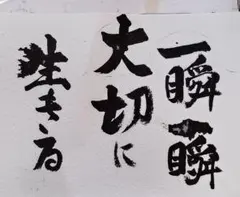 一瞬一瞬
大切に
生きる